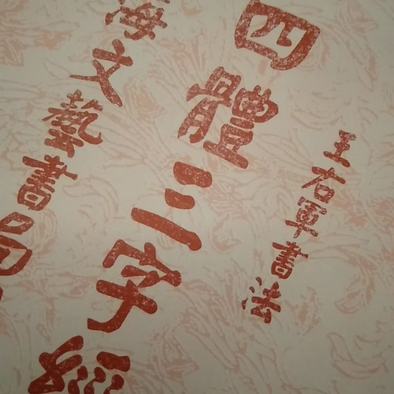 王右軍書法
四體三字經
海文藝書